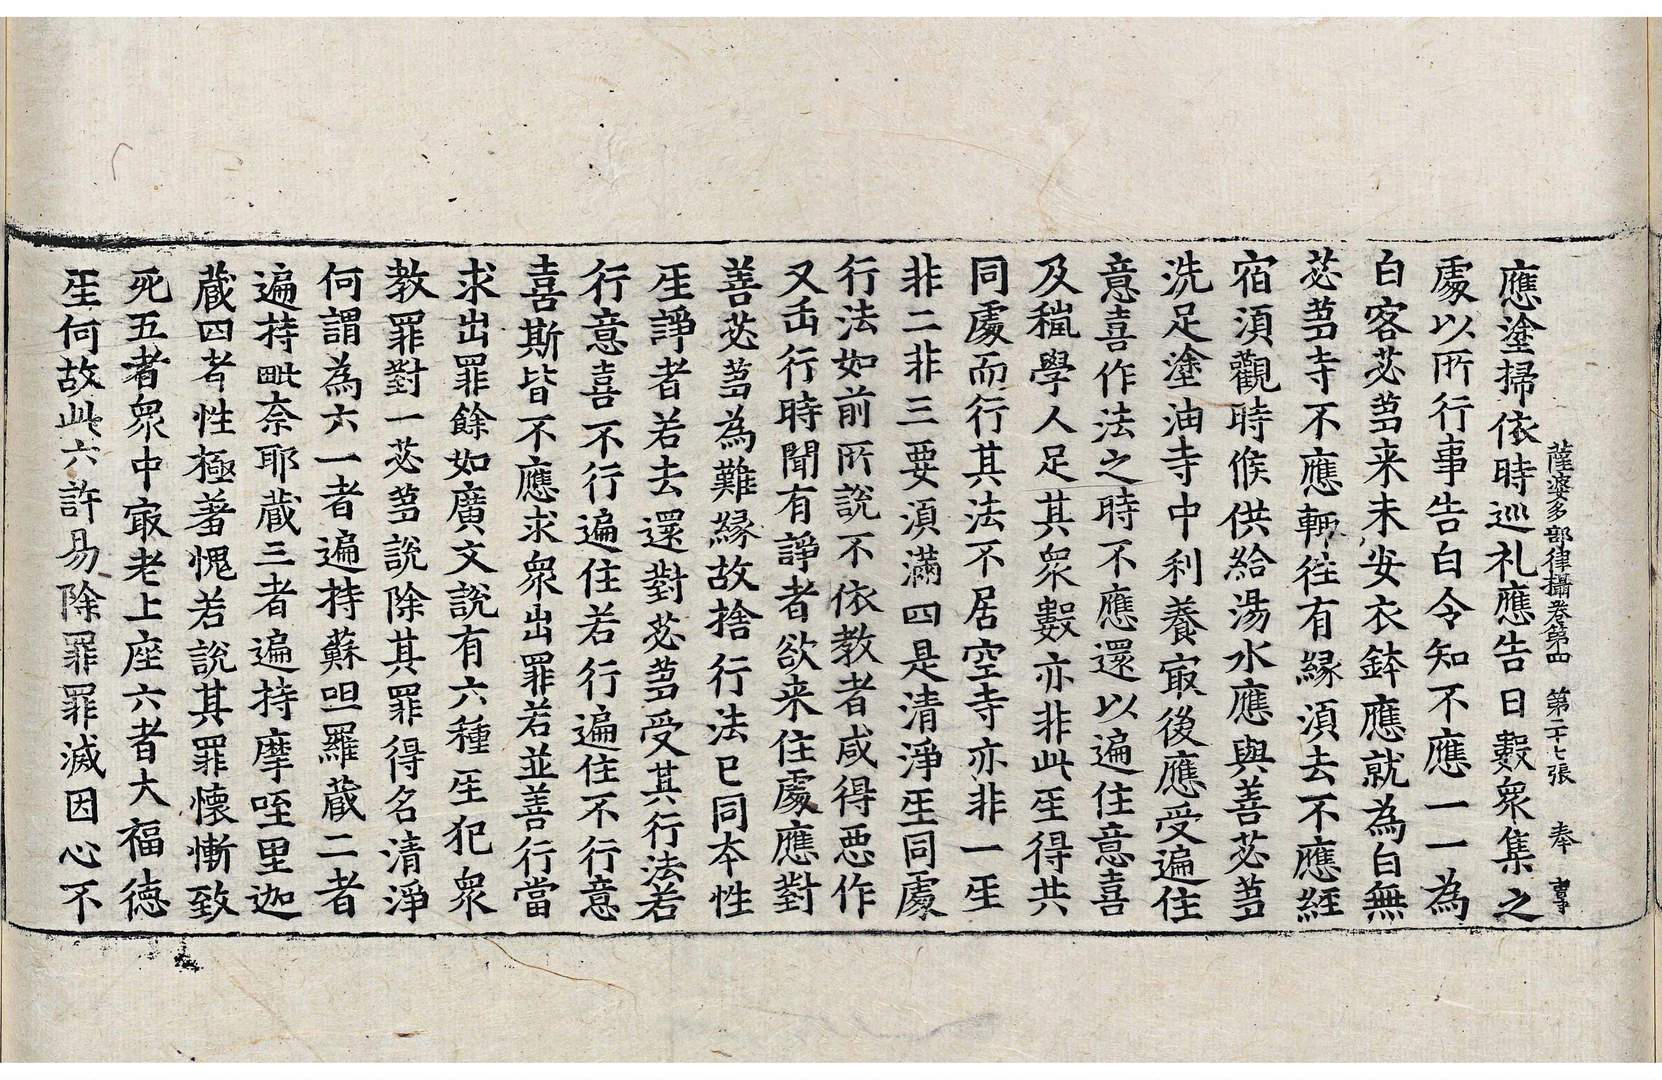 薩婆多部律攝卷第四 第二十七張 奉
應塗掃依時巡礼應告日數衆集之
處以所行事告白令知不應一一為
白客苾芻来未安衣鉢應就為白無
苾芻寺不應輙往有縁湏去不應經
宿湏觀時候供給湯水應與善苾芻
洗足塗油寺中利養㝡後應受遍住
意喜作法之時不應還以遍住意喜
及𥠢學人足其衆數亦非此𤯔得共
同處而行其法不居空寺亦非一𤯔
非二非三要湏滿四是清淨𤯔同處
行法如前所說不依教者咸得惡作
又𠙺行時聞有諍者欲来住處應對
善苾芻為難縁故捨行法已同本性
𤯔諍者若去還對苾芻受其行法若
行意喜不行遍住若行遍住不行意
喜斯皆不應求衆出罪若並善行當
求出罪餘如廣文說有六種𤯔犯衆
教罪對一苾芻說除其罪得名清淨
何謂為六一者遍持蘇呾羅藏二者
遍持毗奈耶藏三者遍持摩咥里迦
藏四者性極著愧若說其罪懷慚致
死五者衆中㝡老上座六者大福徳
𤯔何故此六許易除罪罪滅因心不